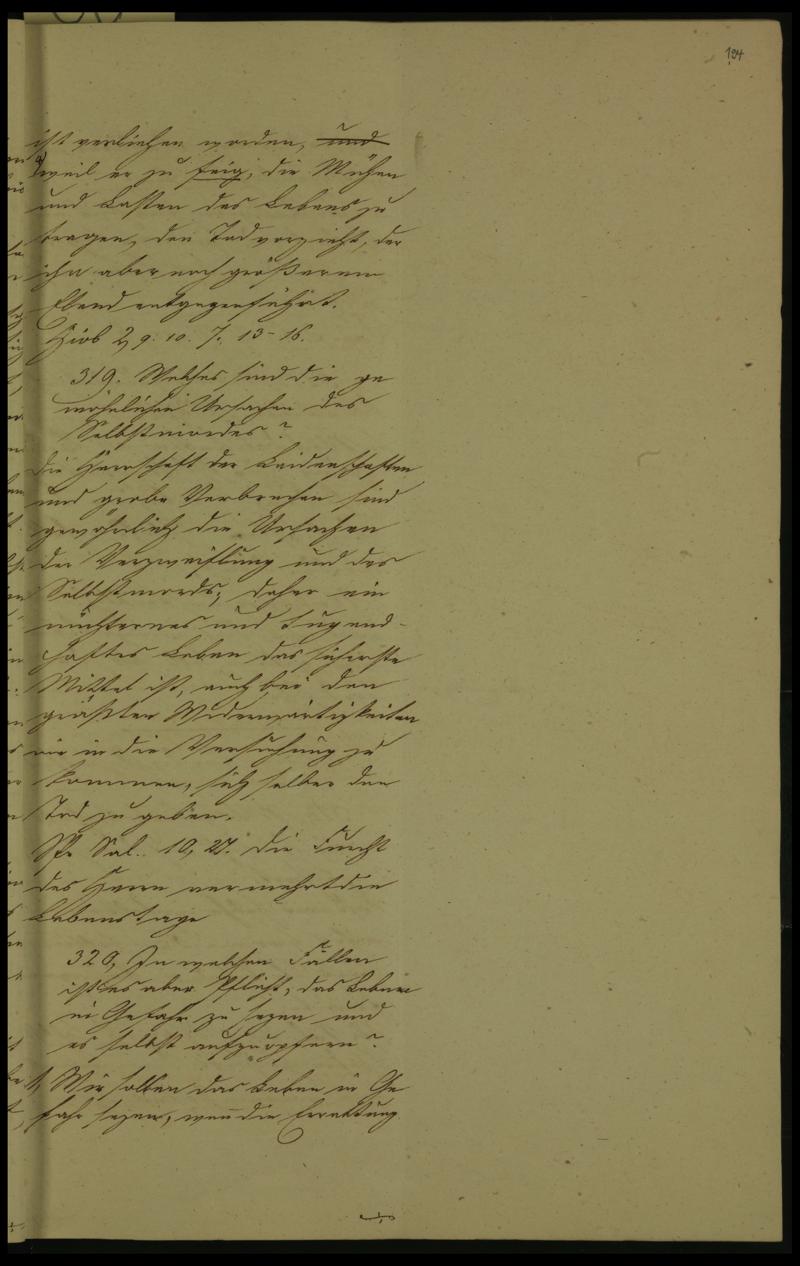 194
ist verliehen worden, und
d) weil er zu feig, die Mühen
und Lasten des Lebens zu
tragen, den Tod vorzieht, der
ihn aber noch größerem
Elend entgegenführt.
Hiob 2, 9. 10. 7. 13-16.
319. Welches sind die ge
wöhnlichen Ursachen des
Selbstmordes?
Die Herrschaft der Leidenschaften
und grobe Verbrechen sind
gewöhnlich die Ursachen
der Verzweiflung und des
Selbstmords; daher ein
nüchternes und tugend-
haftes Leben das sicherste
Mittel ist, auch bei den
größten Widerwärtigkeiten
nie in die Versuchung zu
kommen, sich selber den
Tod zu geben.
Spr. Sal. 10, 27. Die Furcht
des Herrn vermehrt die
Lebenstage
320, In welchen Fällen
ist es aber Pflicht, das Leben
in Gefahr zu sezen und
es selbst aufzuopfern?
1, Wir sollen das Leben in Ge
fahr sezen, wen̄ die Errettung